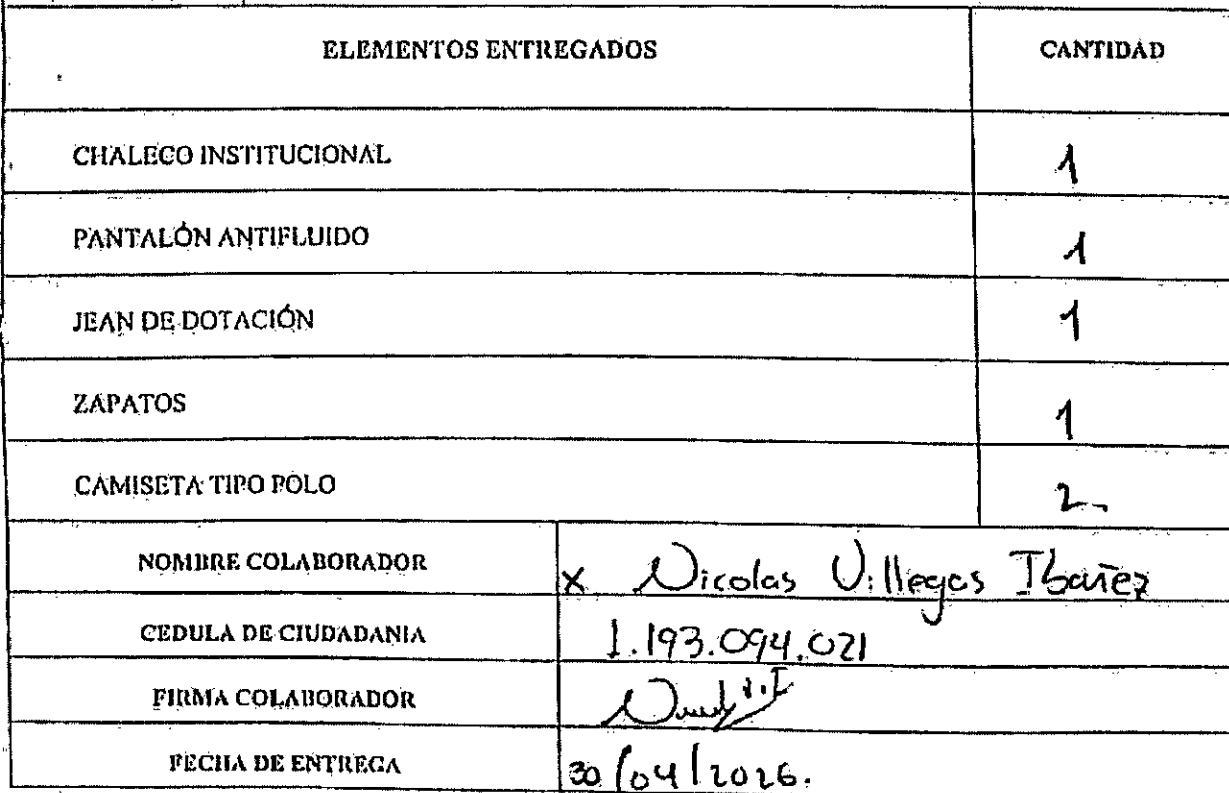 ELEMENTOS ENTREGADOS CANTIDAD
CHALECO INSTITUCIONAL 1
PANTALÓN ANTIFLUIDO 1
JEAN DE DOTACIÓN 1
ZAPATOS 1
CAMISETA TIPO POLO 2
NOMBRE COLABORADOR x Nicolas Villegas Ibañez
CEDULA DE CIUDADANIA 1.193.094.021
FIRMA COLABORADOR
FECHA DE ENTREGA 30/04/2026.